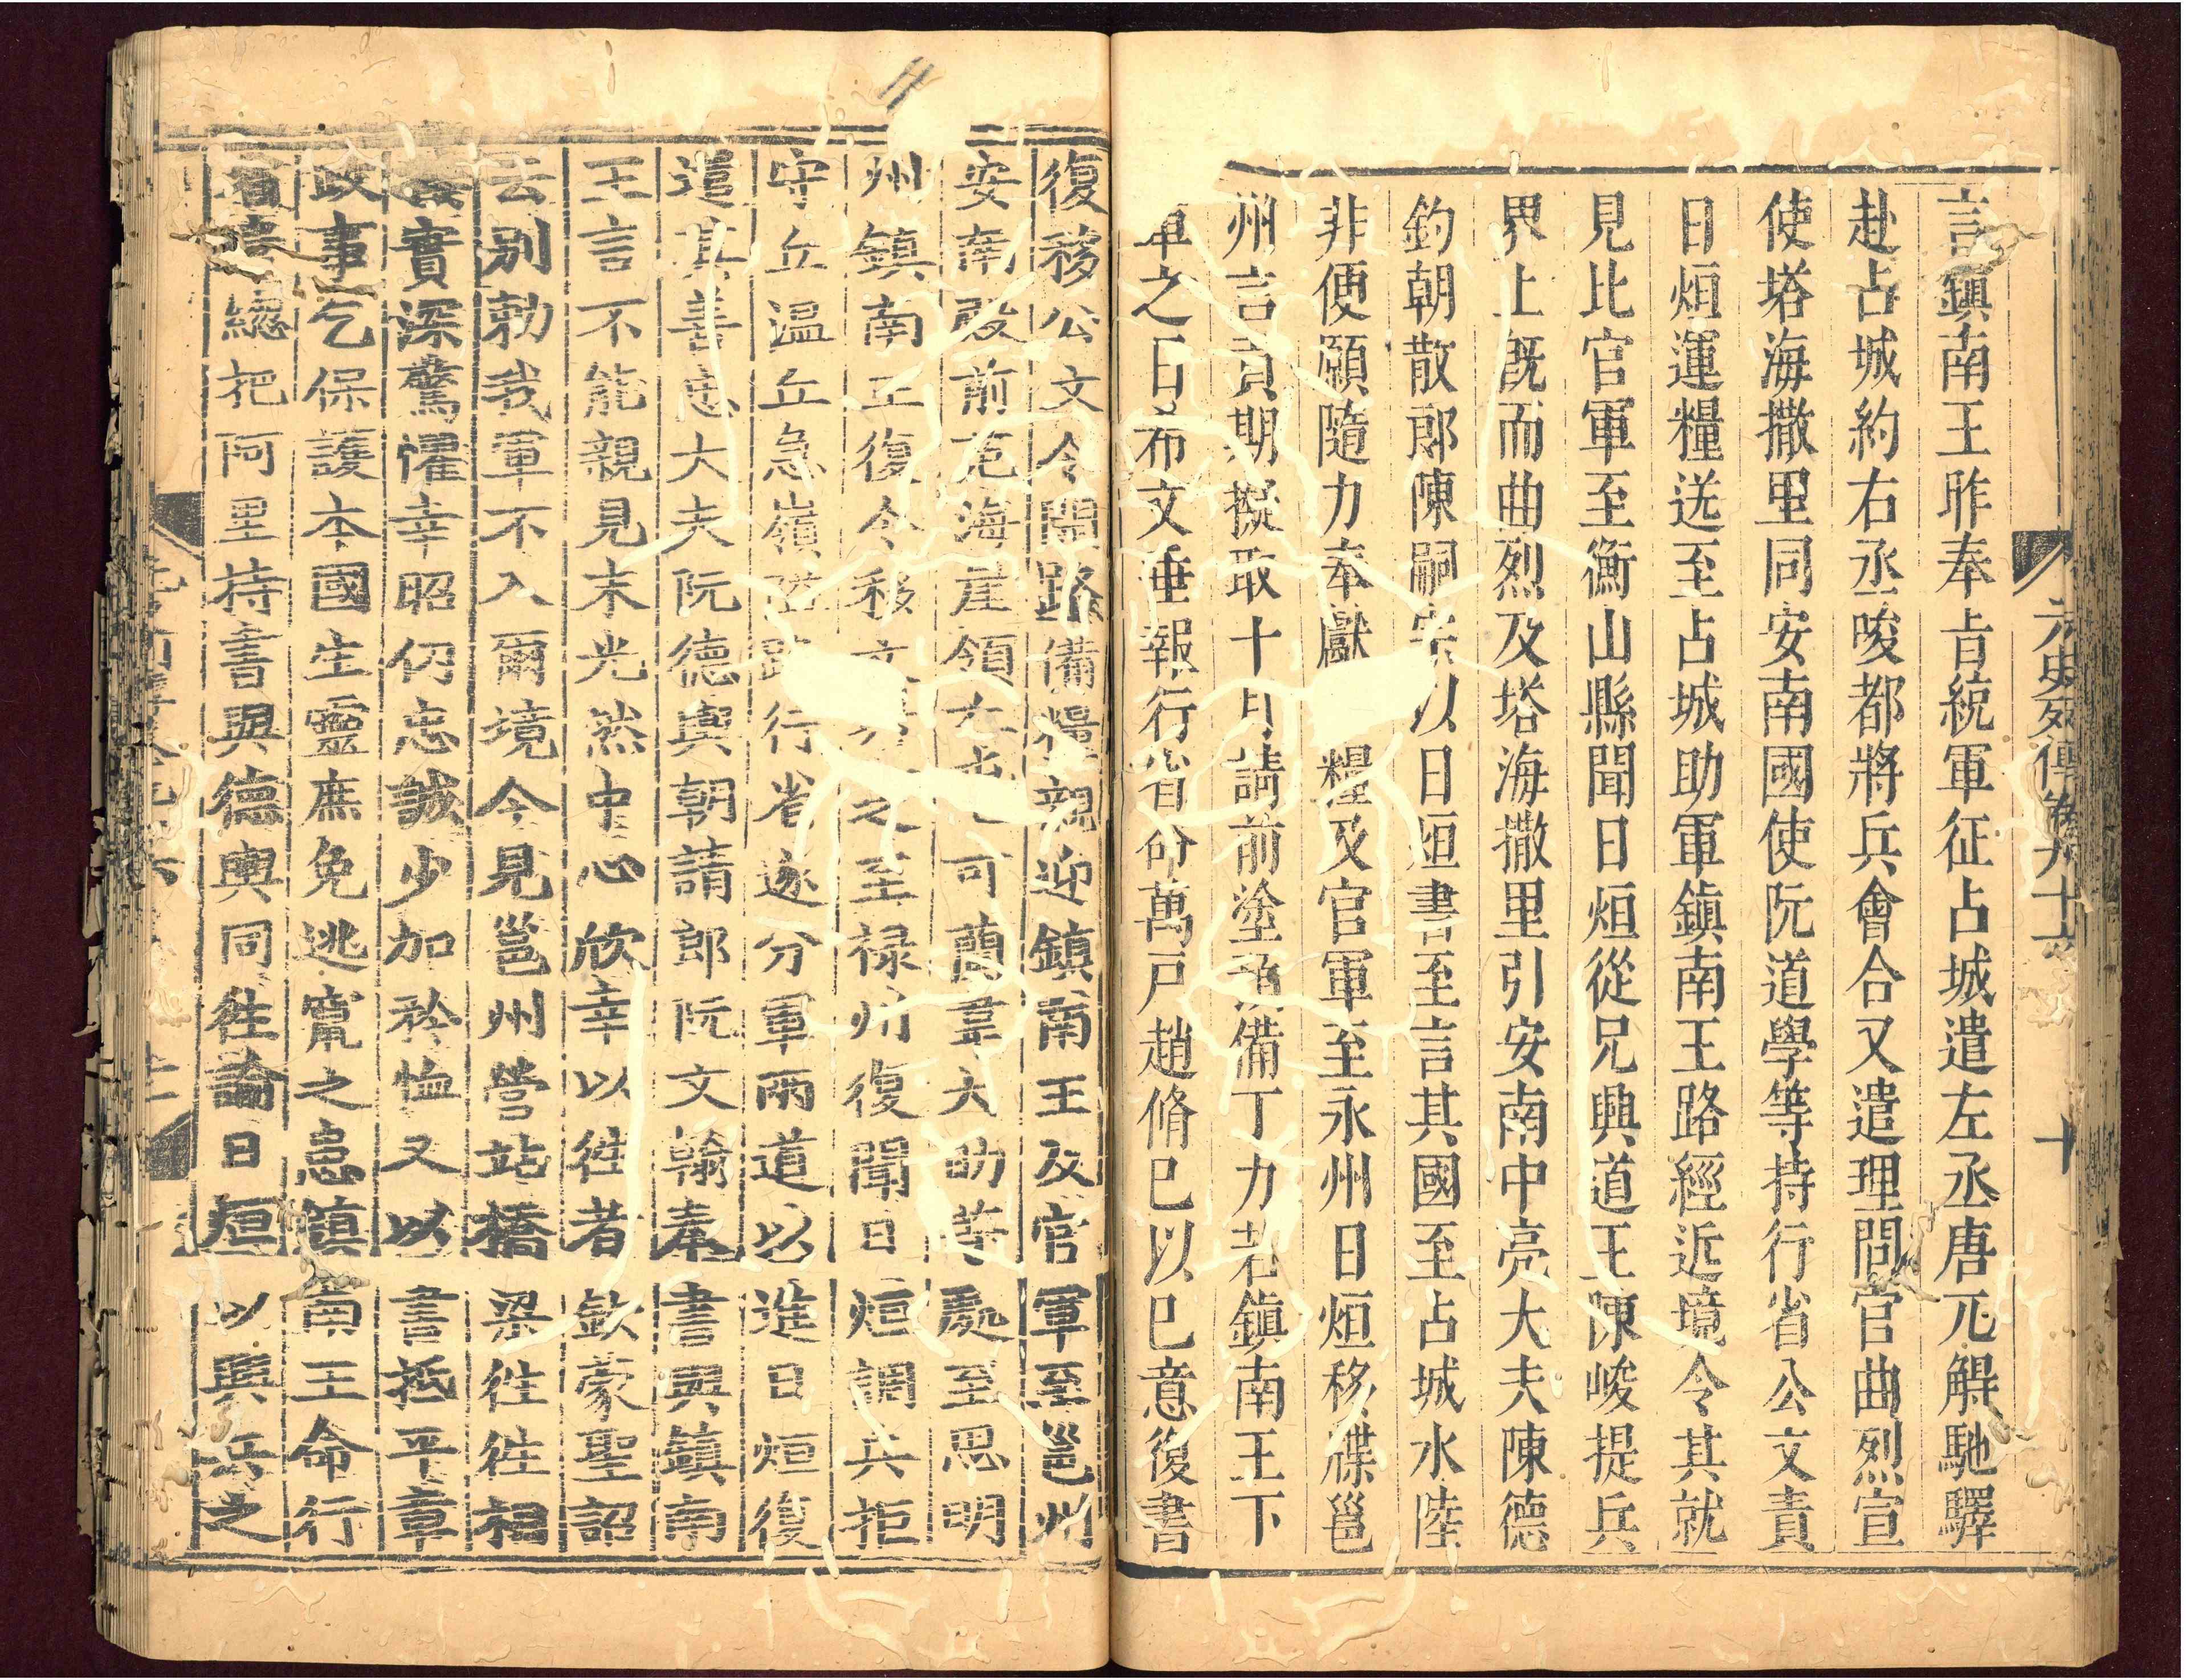 言鎮南王昨奉旨統軍征占城遣左丞唐兀䚟馳驛
赴占城約右丞唆都將兵會合又遣理問官曲烈宣
使塔海撒里同安南國使阮道學等持行省公文責
日烜運糧送至占城助軍鎮南王路經近境令其就
見比官軍至衡山縣聞日烜從兄興道王陳峻提兵
界上既而曲烈及塔海撒里引安南中亮大夫陳德
鈞朝散郎陳嗣宗以日烜書至言其國至占城水陸
非便願隨力奉獻糧及官軍至永州日烜移牒邕
州言貢期擬取十月請前塗預備丁力若鎮南王下
車之日希文垂報行省命萬戶趙脩巳以巳意復書
復移公文令開路備糧親迎鎮南王及官軍至邕州
安南殿前范海崖領兵屯可蘭韋大助等處至思明
州鎮南王復令移文與之至祿州復聞日烜調兵拒
守丘溫丘急嶺隘路行省遂分軍兩道以進日烜復
遣其善忠大夫阮德輿朝請郎阮文翰奉書與鎮南
王言不能親見末光然中心欣幸以往者欽蒙聖詔
云別勑我軍不入爾境今見邕州營站橋梁往往相
實深驚懼幸昭仞忠誠少加矜恤又以書抵平章
政事乞保護本國生靈庶免逃竄之急鎮南王命行
省遣總把阿里持書與德輿同往諭日烜以興兵之
元史列傳卷九十六
十